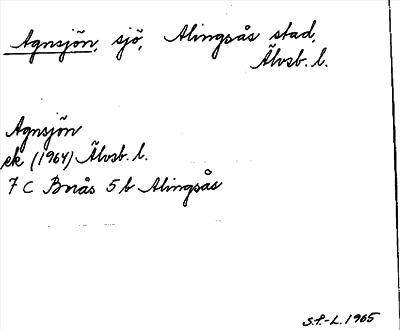 Agnsjön, sjö, Alingsås stad,
Älvsb. l.
Agnsjön
ek (1964) Älvsb. l.
7 C Borås 5 b Alingsås
S.P.-L. 1965